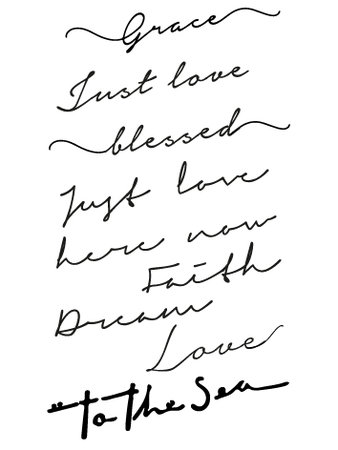 Grace
Just love
blessed
Just love
here now
Faith
Dream
Love
"to the Sea